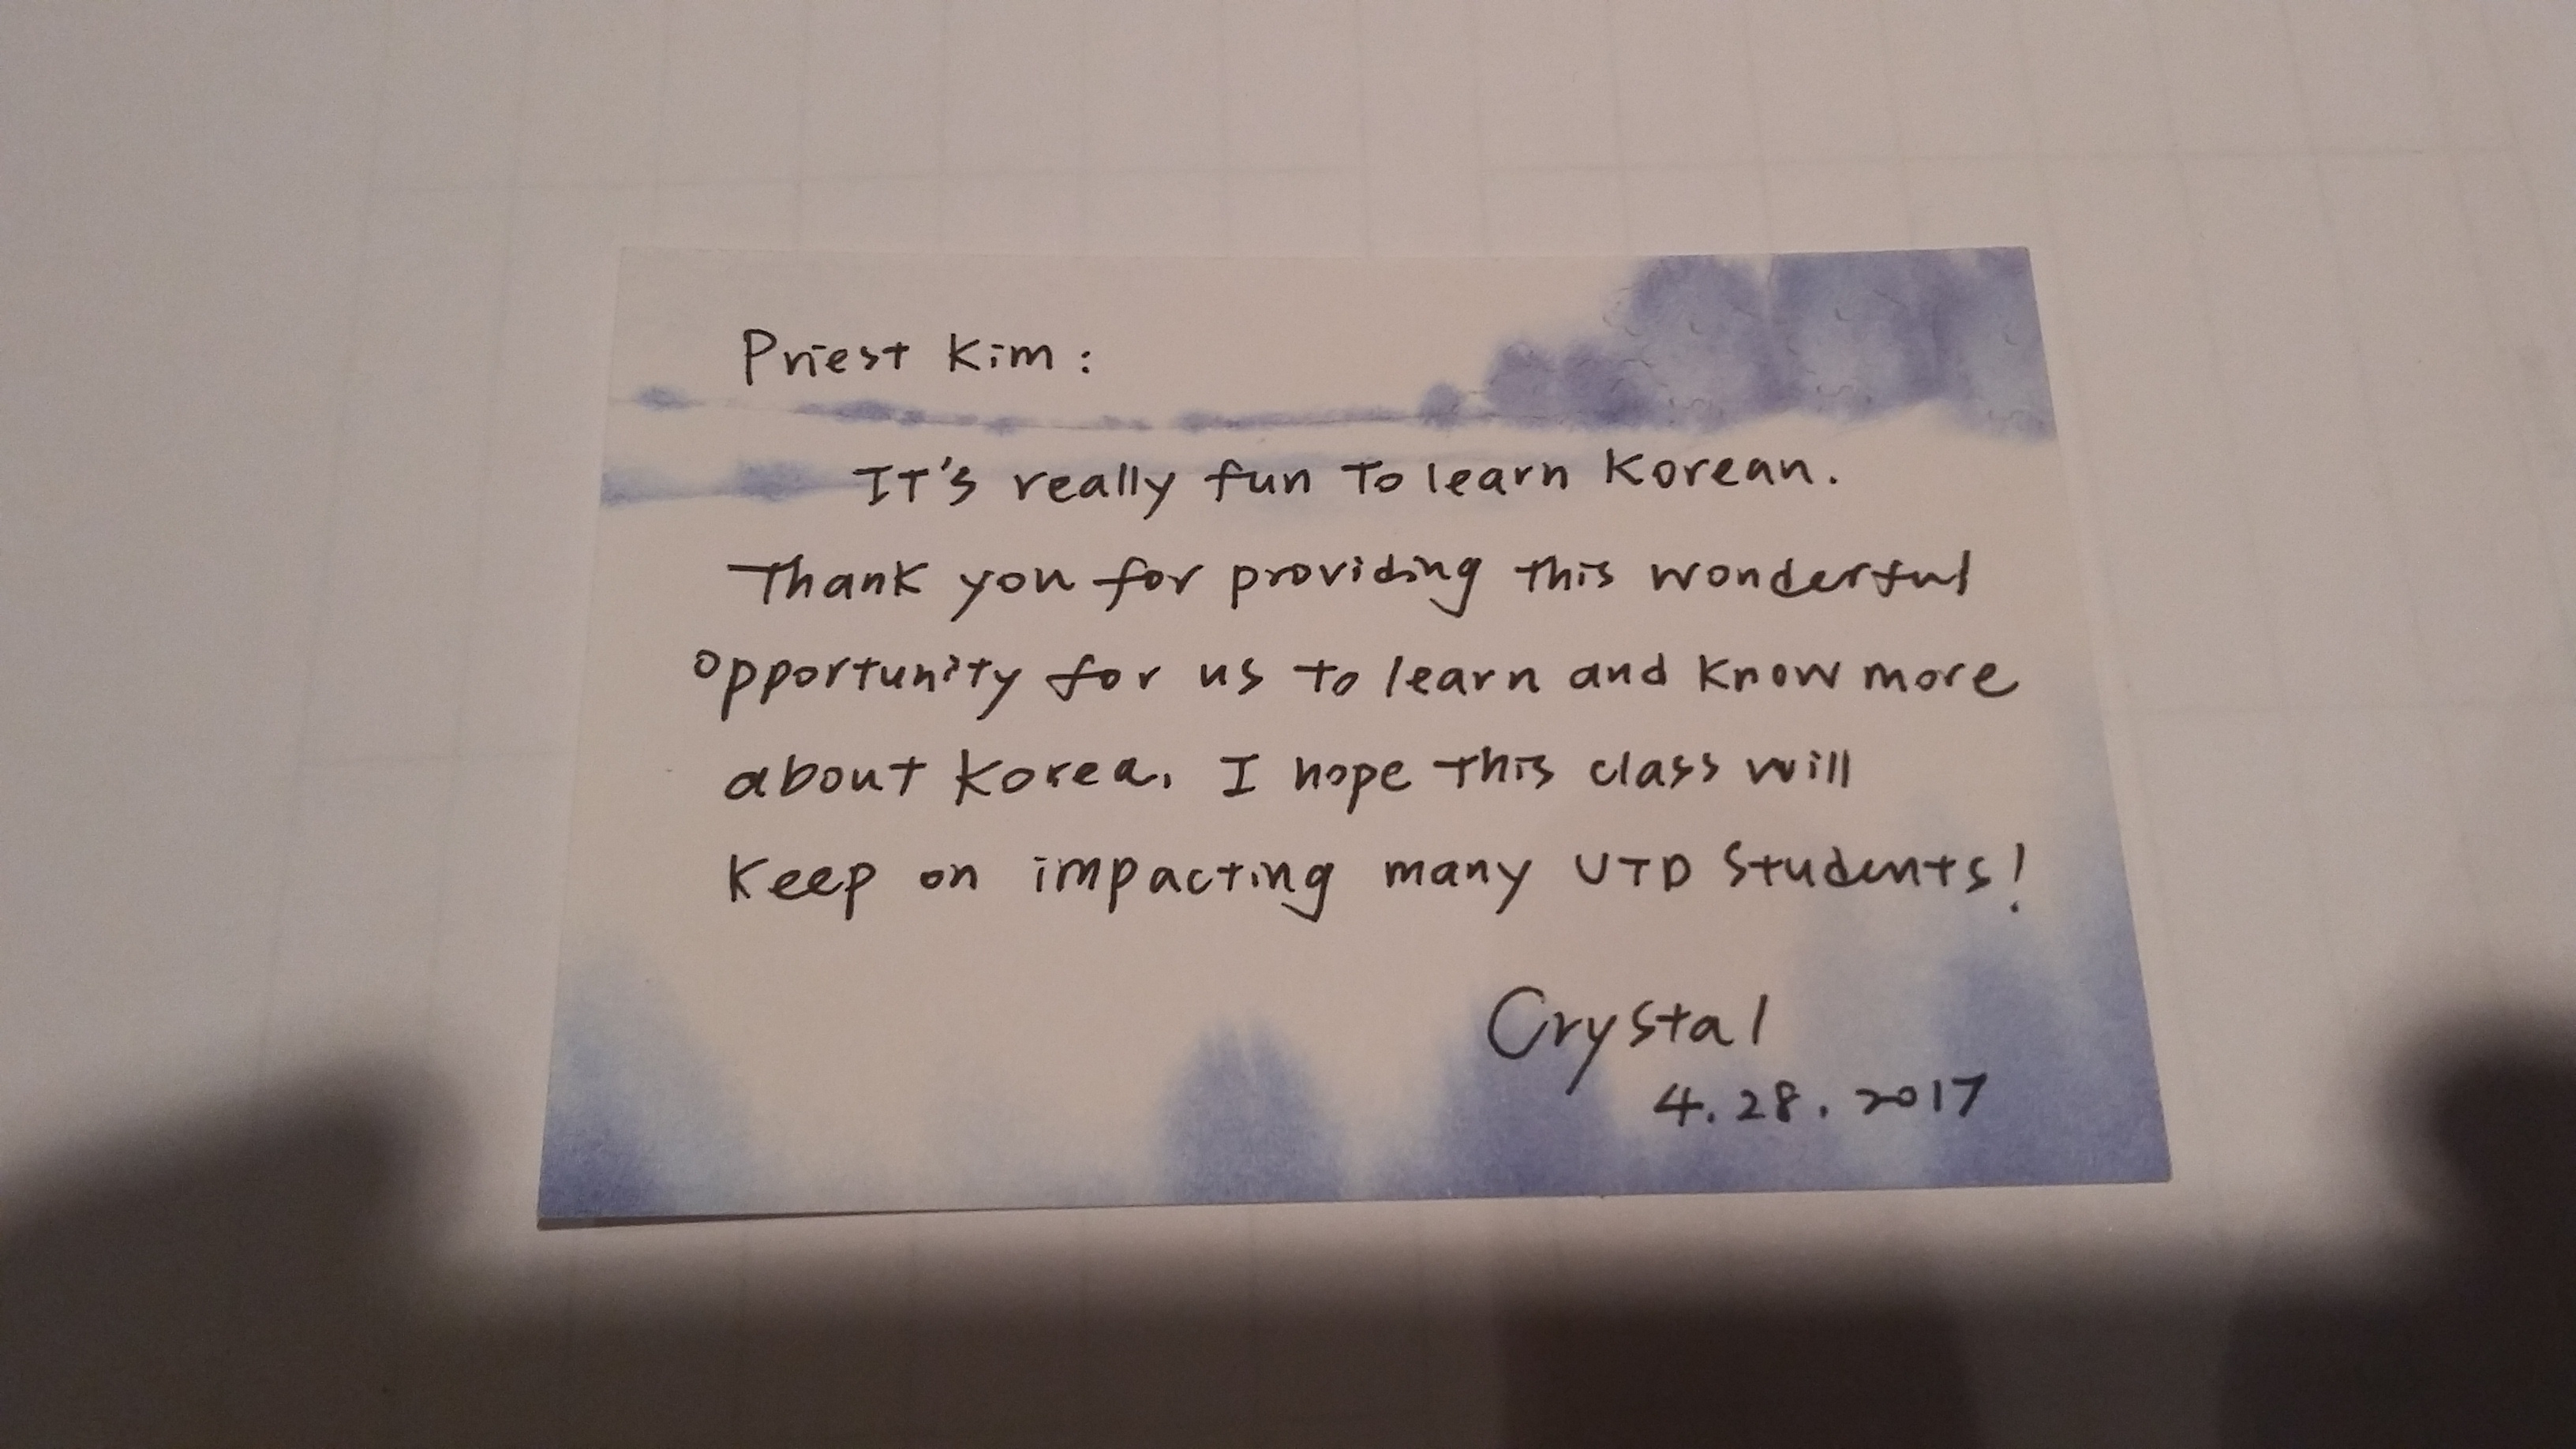 Priest Kim:
It's really fun to learn Korean.
Thank you for providing this wonderful
opportunity for us to learn and know more
about Korea. I hope this class will
keep on impacting many UTD students!
Crystal
4.28.2017